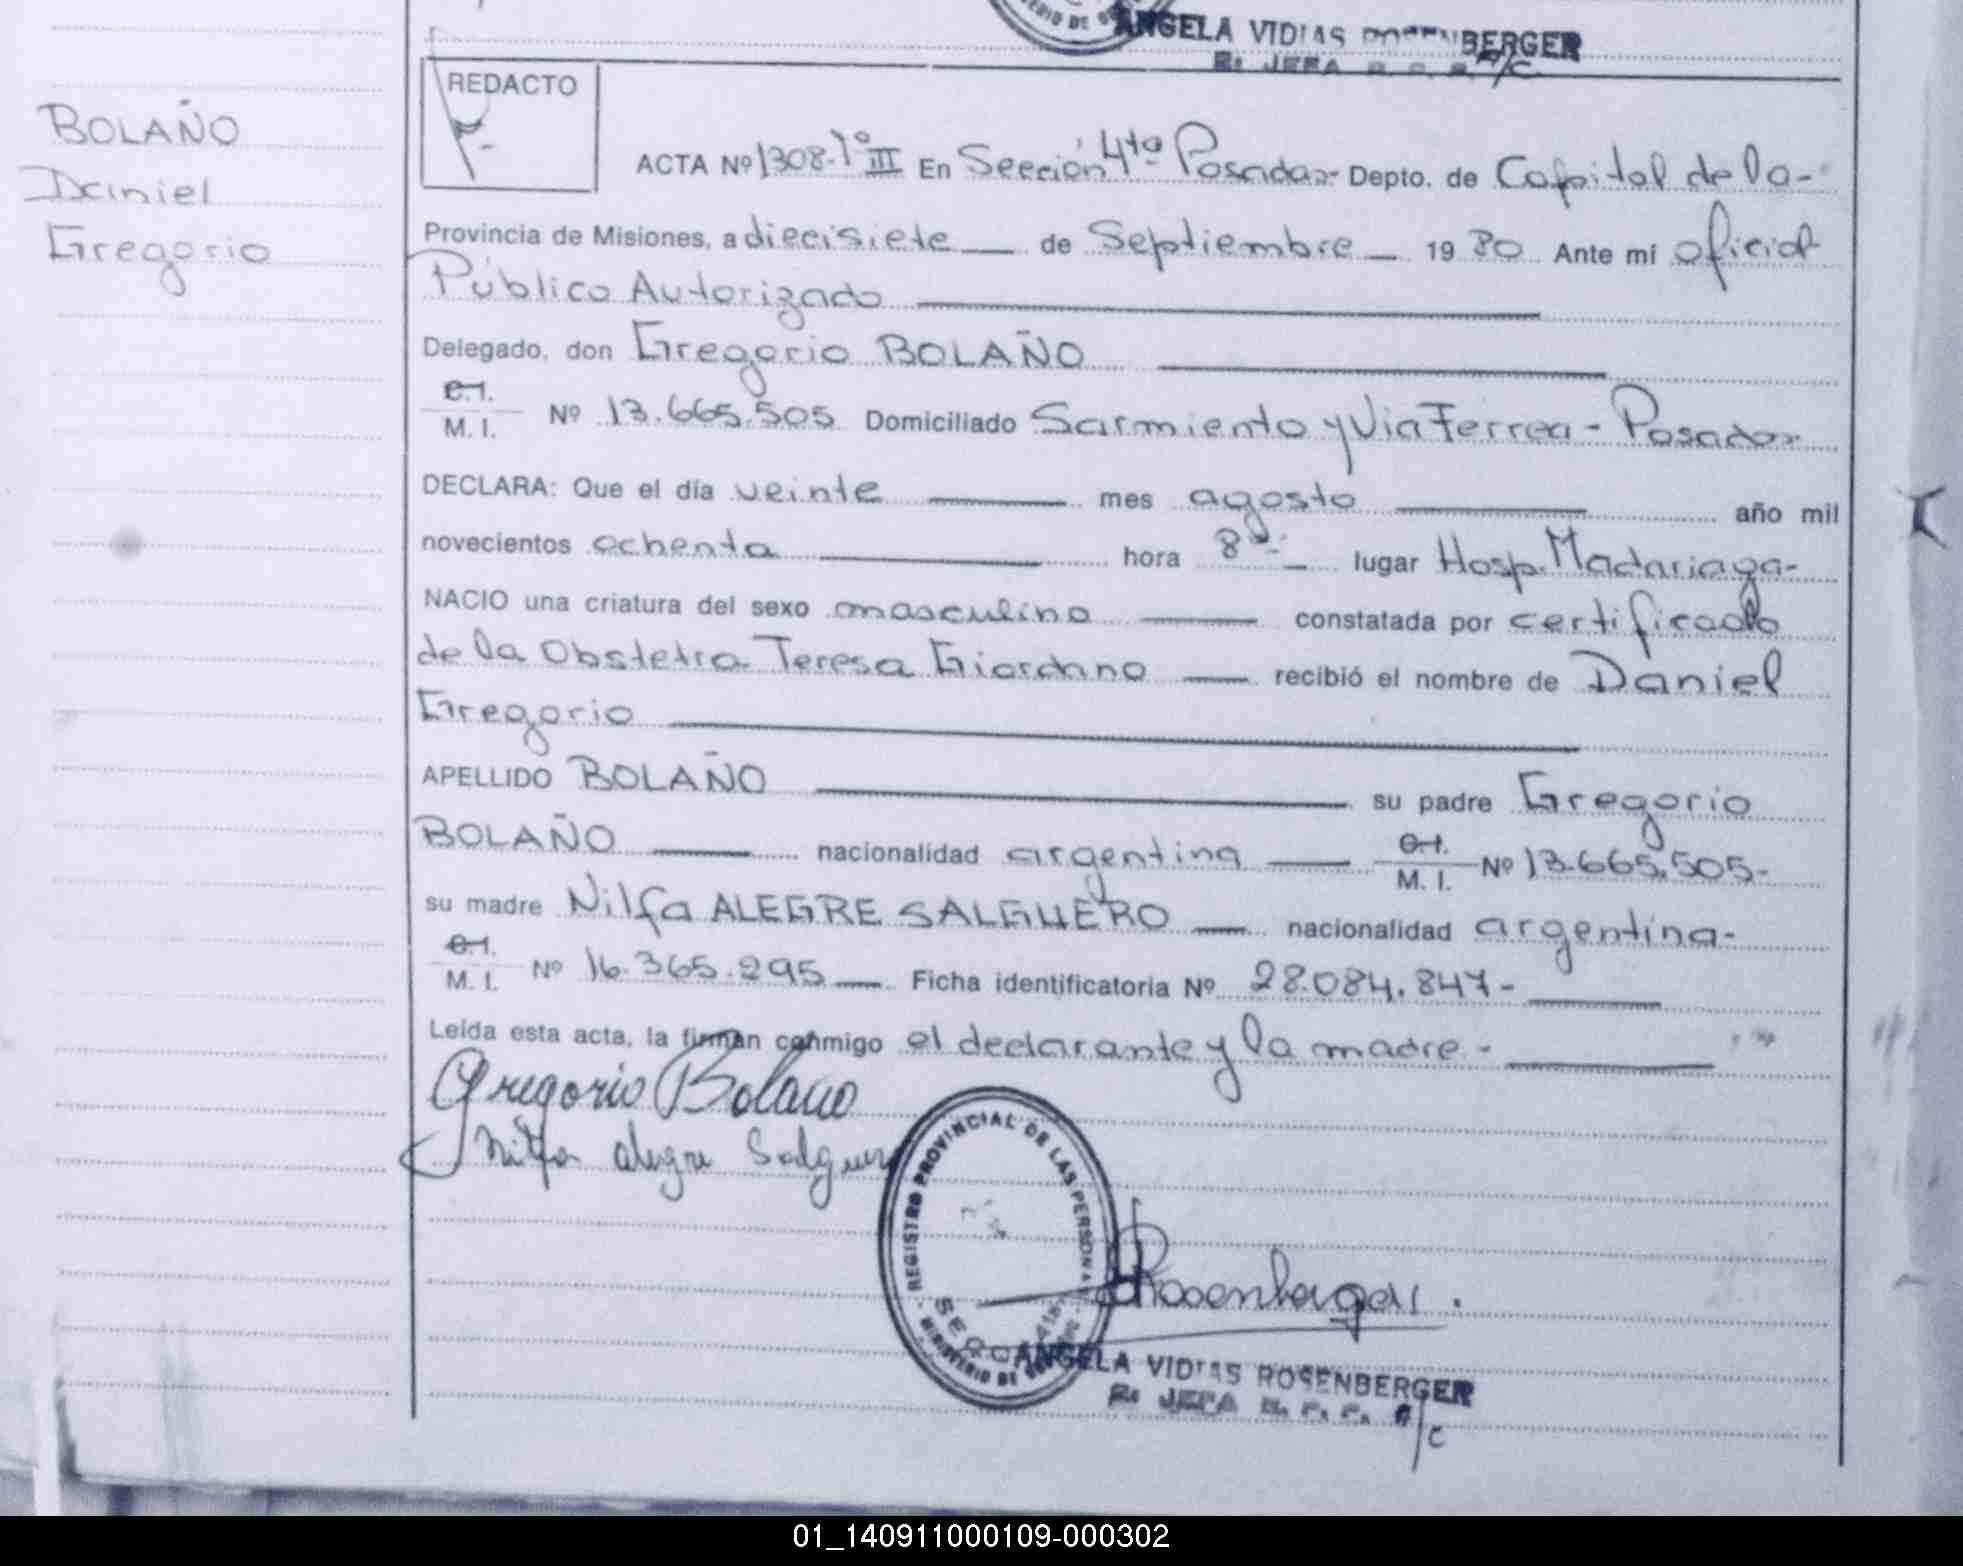 MINISTERIO DE GO
ANGELA VIDIAS ROSENBERGER
2a JEFA R. P. P. A/C
BOLAÑO
Daniel
Gregorio
REDACTO
ACTA Nº 1308-Tº III En Sección 4ta Posadas- Depto. de Capital de la-
Provincia de Misiones, a diecisiete — de Septiembre — 1980 Ante mí oficial
Público Autorizado
Delegado, don Gregorio BOLAÑO
C.I.
M. I. Nº 13.665.505 Domiciliado Sarmiento y Via Ferrea - Posadas
DECLARA: Que el día veinte — mes agosto — año mil
novecientos ochenta — hora 8 — lugar Hosp. Madariaga-
NACIO una criatura del sexo masculino — constatada por certificado
de la Obstetra Teresa Giordano — recibió el nombre de Daniel
Gregorio
APELLIDO BOLAÑO — su padre Gregorio
BOLAÑO — nacionalidad argentina — C.I.
M. I. Nº 13.665.505-
su madre Nilfa ALEGRE SALGUEYRO — nacionalidad argentina-
C.I.
M. I. Nº 16.365.295 — Ficha identificatoria Nº 28.084.847-
Leída esta acta, la firman conmigo el declarante y la madre-
Gregorio Bolaño
Nilfa alegre Salgue
REGISTRO PROVINCIAL DE LAS PERSONAS
MINISTERIO DE GO
Rosenberger
ANGELA VIDIAS ROSENBERGER
2a JEFA R. P. P. A/C
01_140911000109-000302